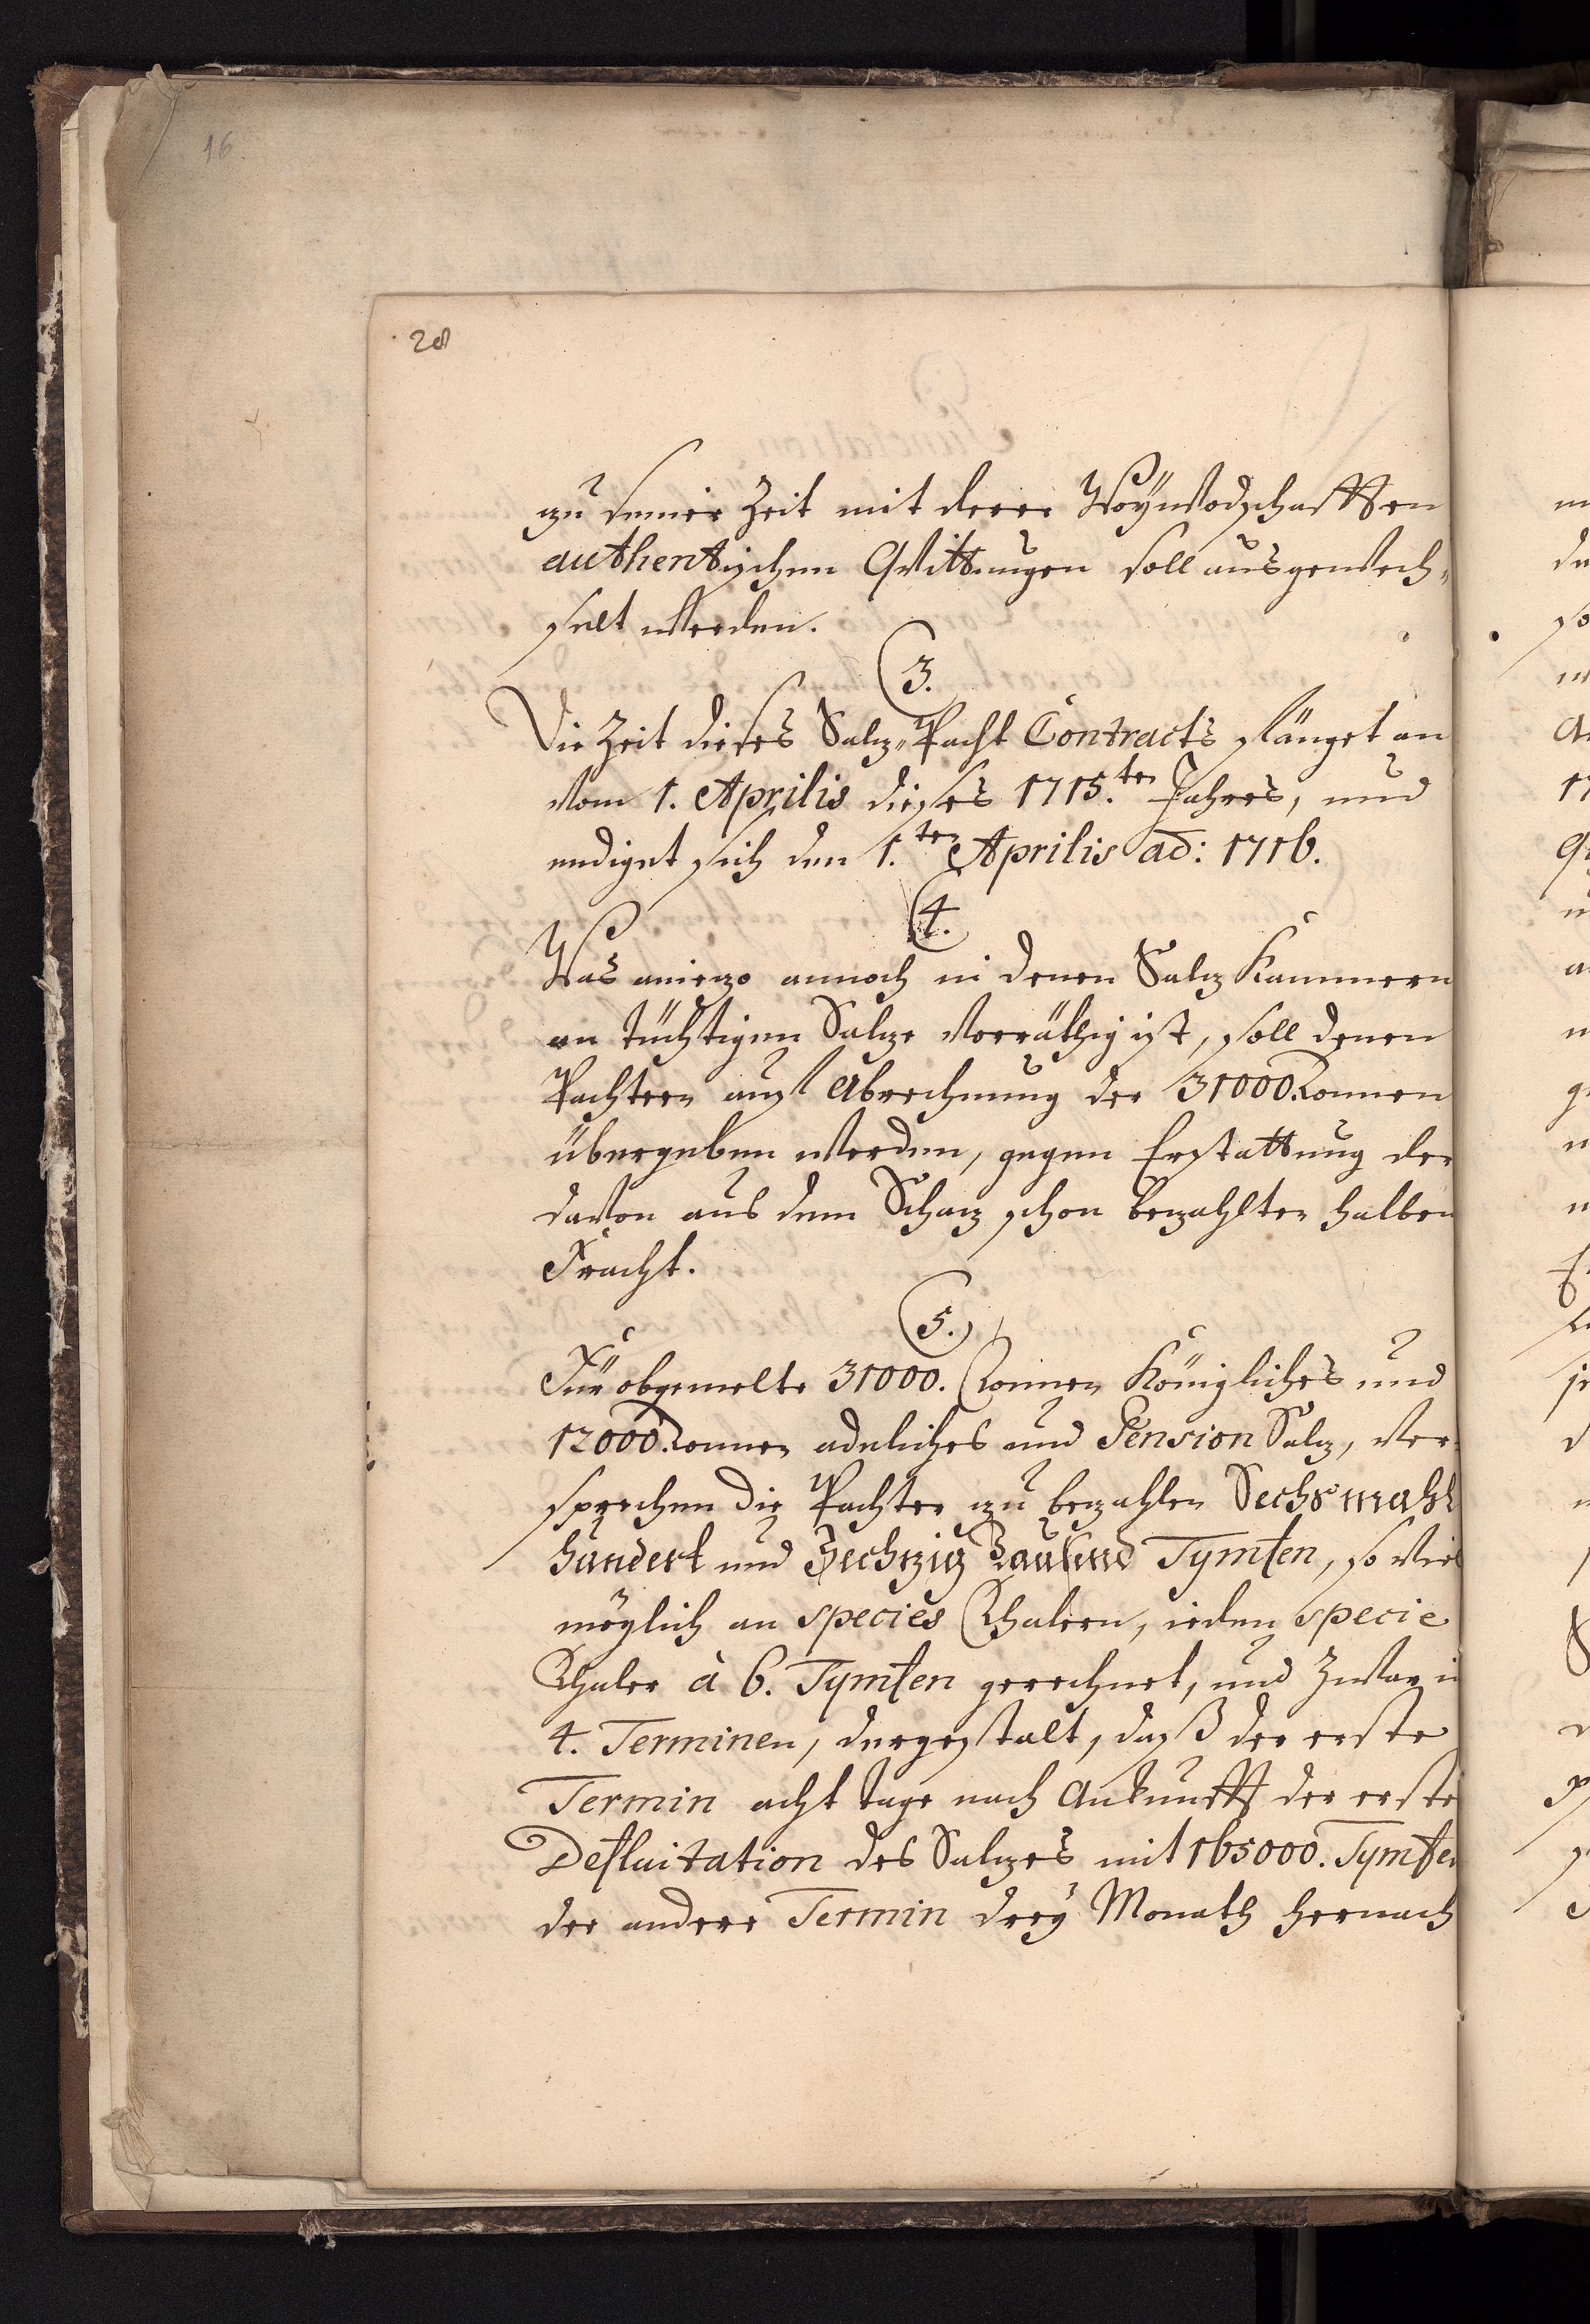 16
28
zu seiner Zeit mit derer Woÿwodschafften
authentischen Qvittungen soll ausgewech„
selt werden.
3.
Die Zeit dieses Saltz„Pacht Contracts fänget an
vom 1. Aprilis dieses 1715.ten Jahres, und
endiget sich den 1.ten Aprilis ao: 1716.
4.
Was anietzo annoch in denen Saltz Kammern
an tüchtigen Saltze vorräthig ist, soll denen
Pachtern auf Abrechnung der 31000. Tonnen
übergeben werden, gegen Erstattung der
davon aus dem Schatz schon bezahlten halben
Fracht.
5.
Für obgemelte 31000. Tonnen Königliches und
12000. Tonnen adeliches und Pension Saltz, ver
sprechen die Pachter zu bezahlen Sechsmahl
hundert und Sechzig Tausend Tymfen, so viel
möglich an species Thalern, ieden specie
Thaler à 6. Tymfen gerechnet, und zwar in
4. Terminen, dergestalt, daß der erste
Termin acht tage nach Ankunfft der erste
Defluitation des Saltzes mit 165000. Tymfen
der andere Termin dreÿ Monath hernach